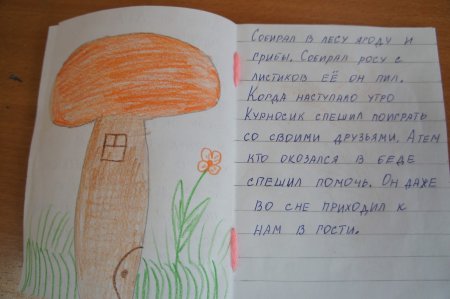 Собирал в лесу ягоду и
грибы. Собирал росу с
листиков её он пил.
Когда наступало утро
Курносик спешил поиграть
со своими друзьями. А тем
кто оказался в беде
спешил помочь. Он даже
во сне приходил к
нам в гости.